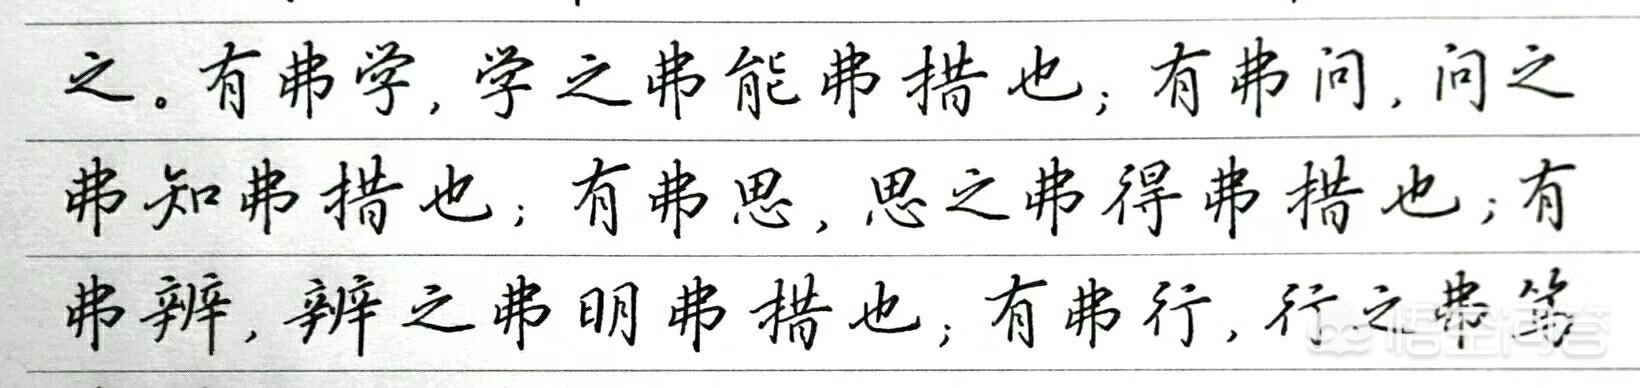 之。有弗学,学之弗能弗措也;有弗问,问之
弗知弗措也;有弗思,思之弗得弗措也;有
弗辨,辨之弗明弗措也;有弗行,行之弗笃
悟空问答